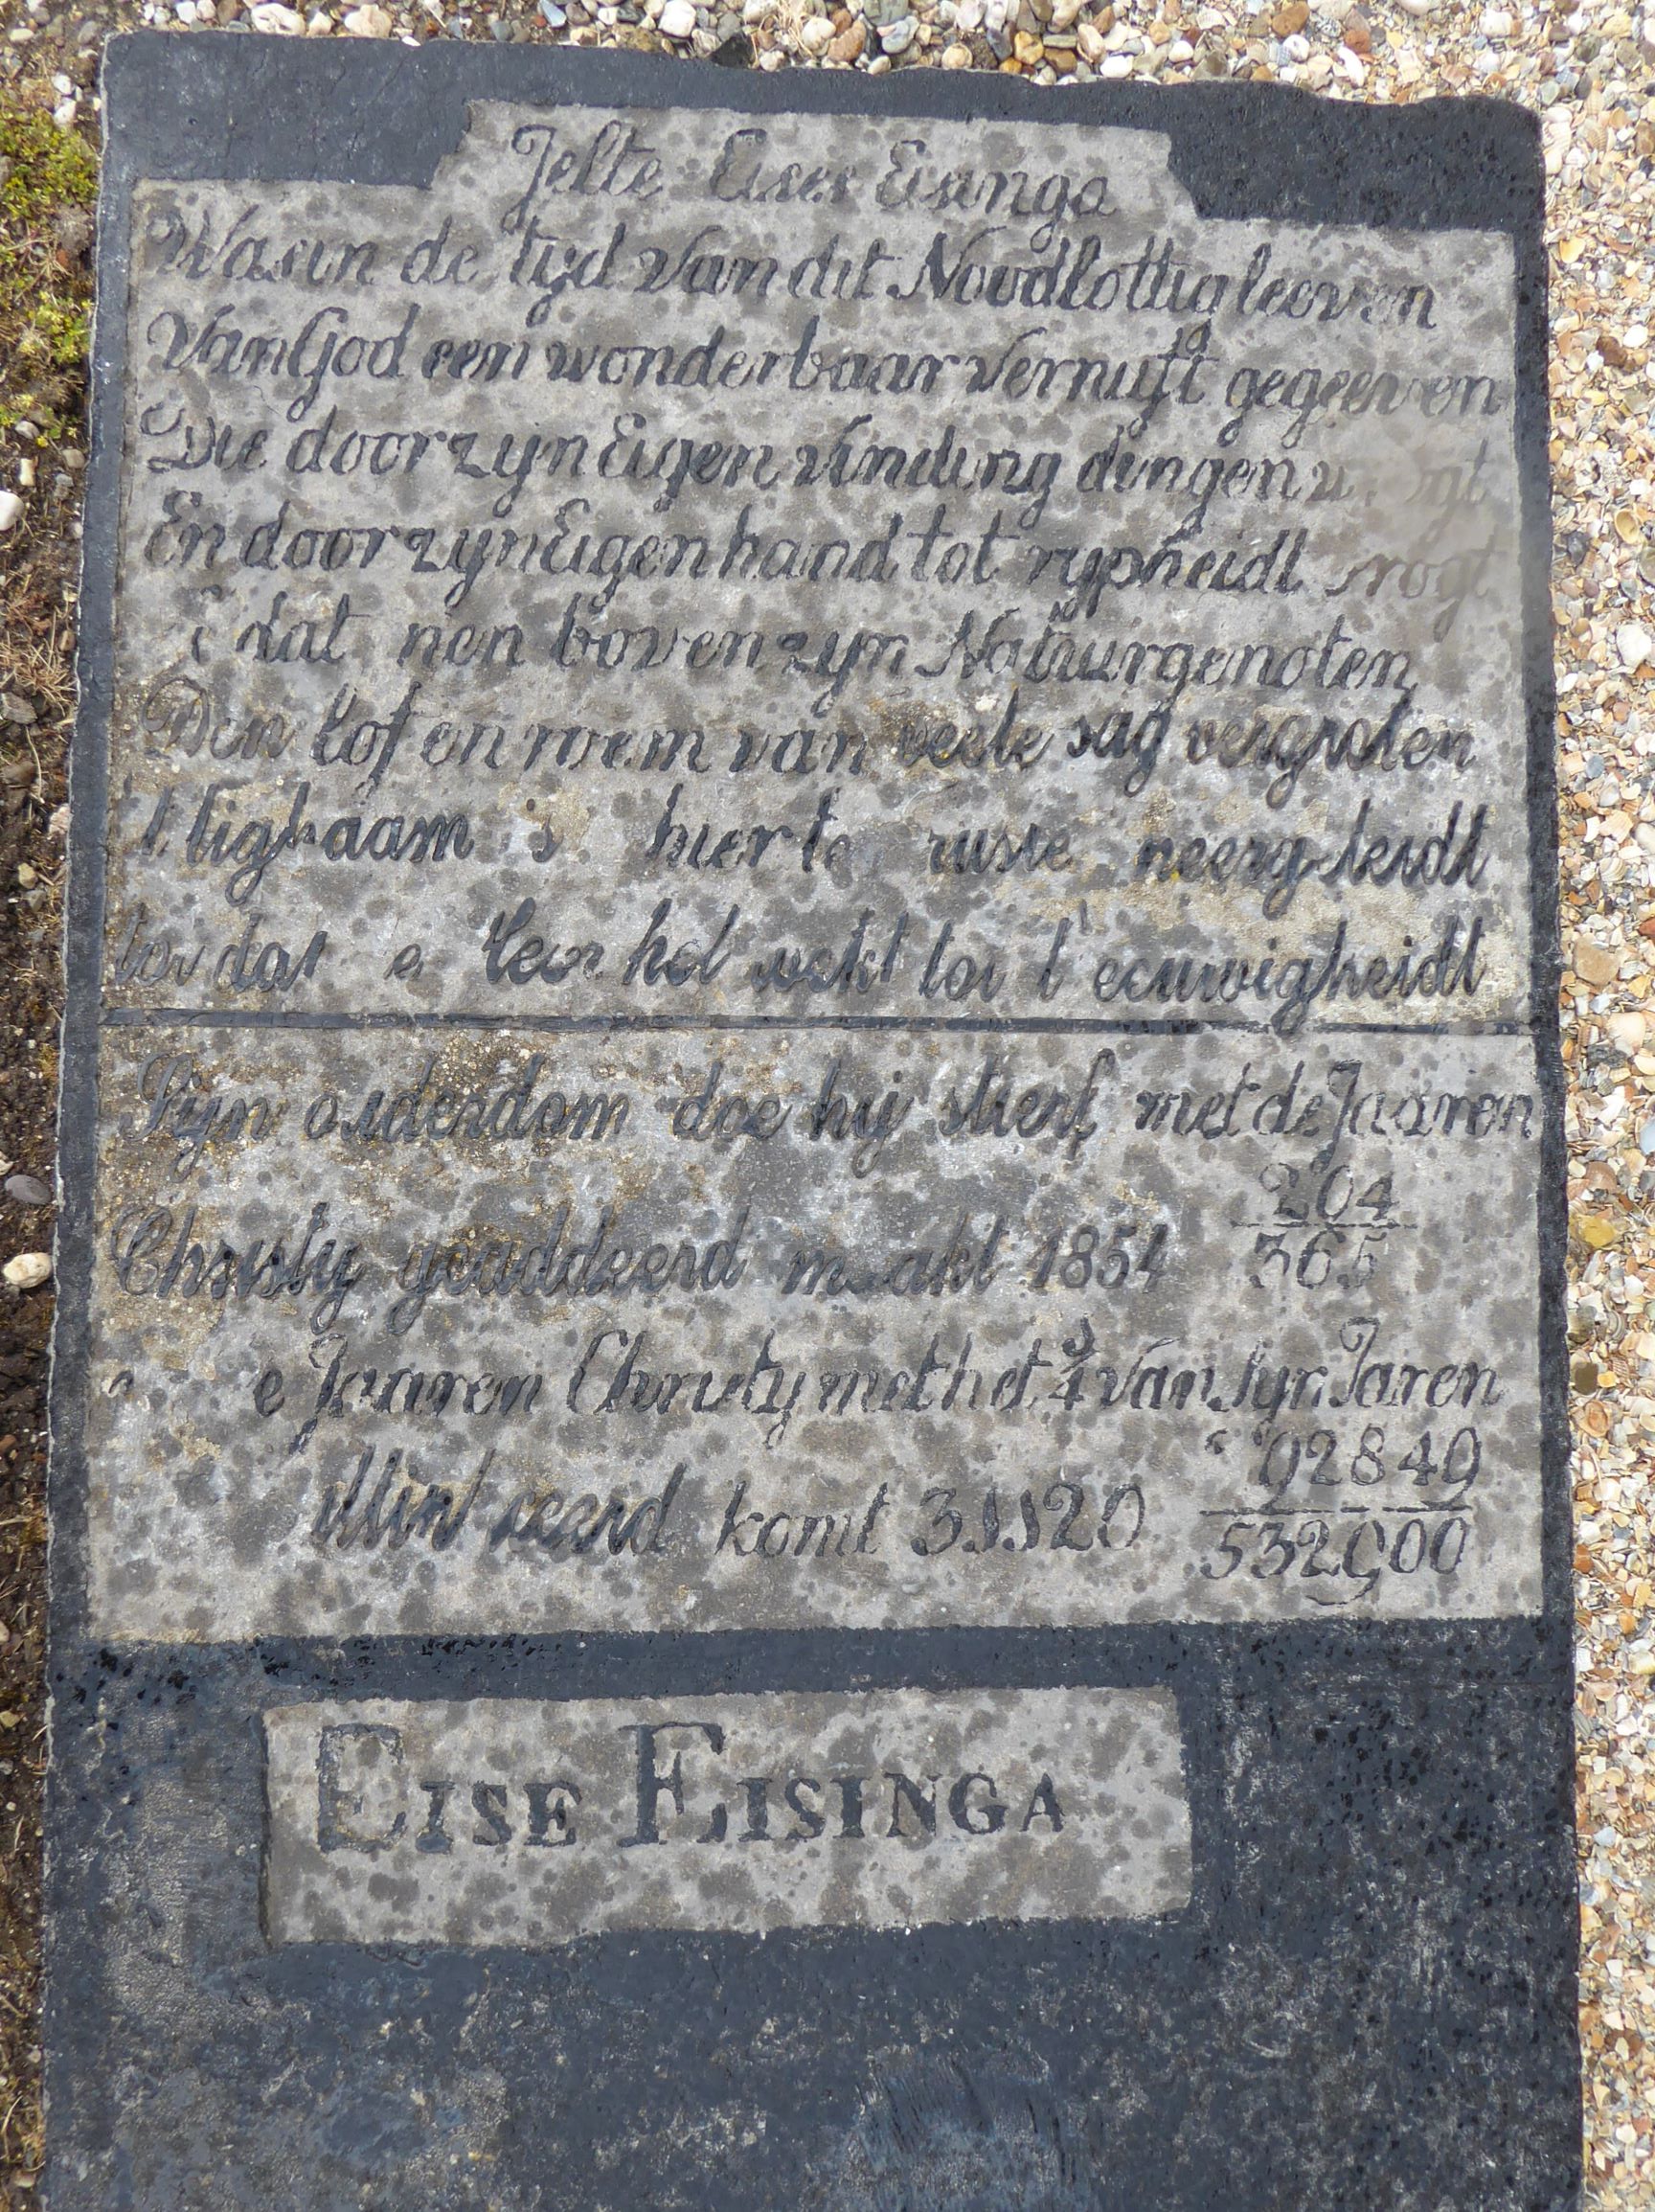 Jelte Eises Eisinga
Was in de tyd van dit Noodlottig leeven
Van God een wonderbaar vernuft gegeeven
Die door zyn Eigen vinding dingen
En door zyn Eigen hand tot rypheidt
dat men boven zyn Natuurgenoten
Den lof en roem van veele sag vergroten
't lighaam is hier ter ruste neergeleidt
tot dat Heer het wekt tot t' eeuwigheidt
Syn ouderdom doe hij stierf met de Jaaren
204
365
Christy geaddeerd maakt 1854
e Jaaren Christy met het ¾ van Syn Jaren
92849
532900
komt 31120
EISE EISINGA